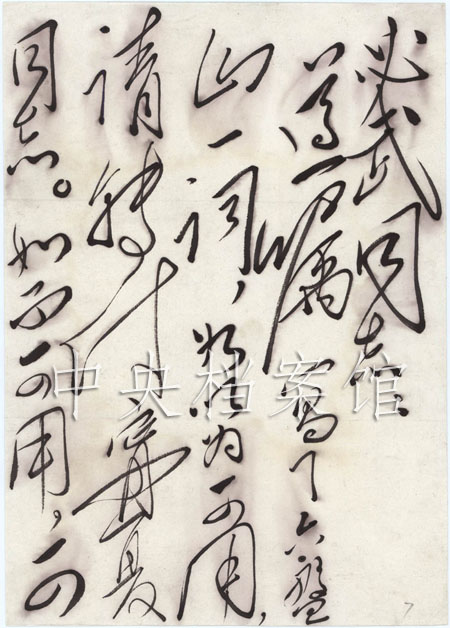 必武同志：
遵嘱，写了六盘
山一词，如以为可用，
请转付宁夏
同志。如不可用，可
中央档案馆
7